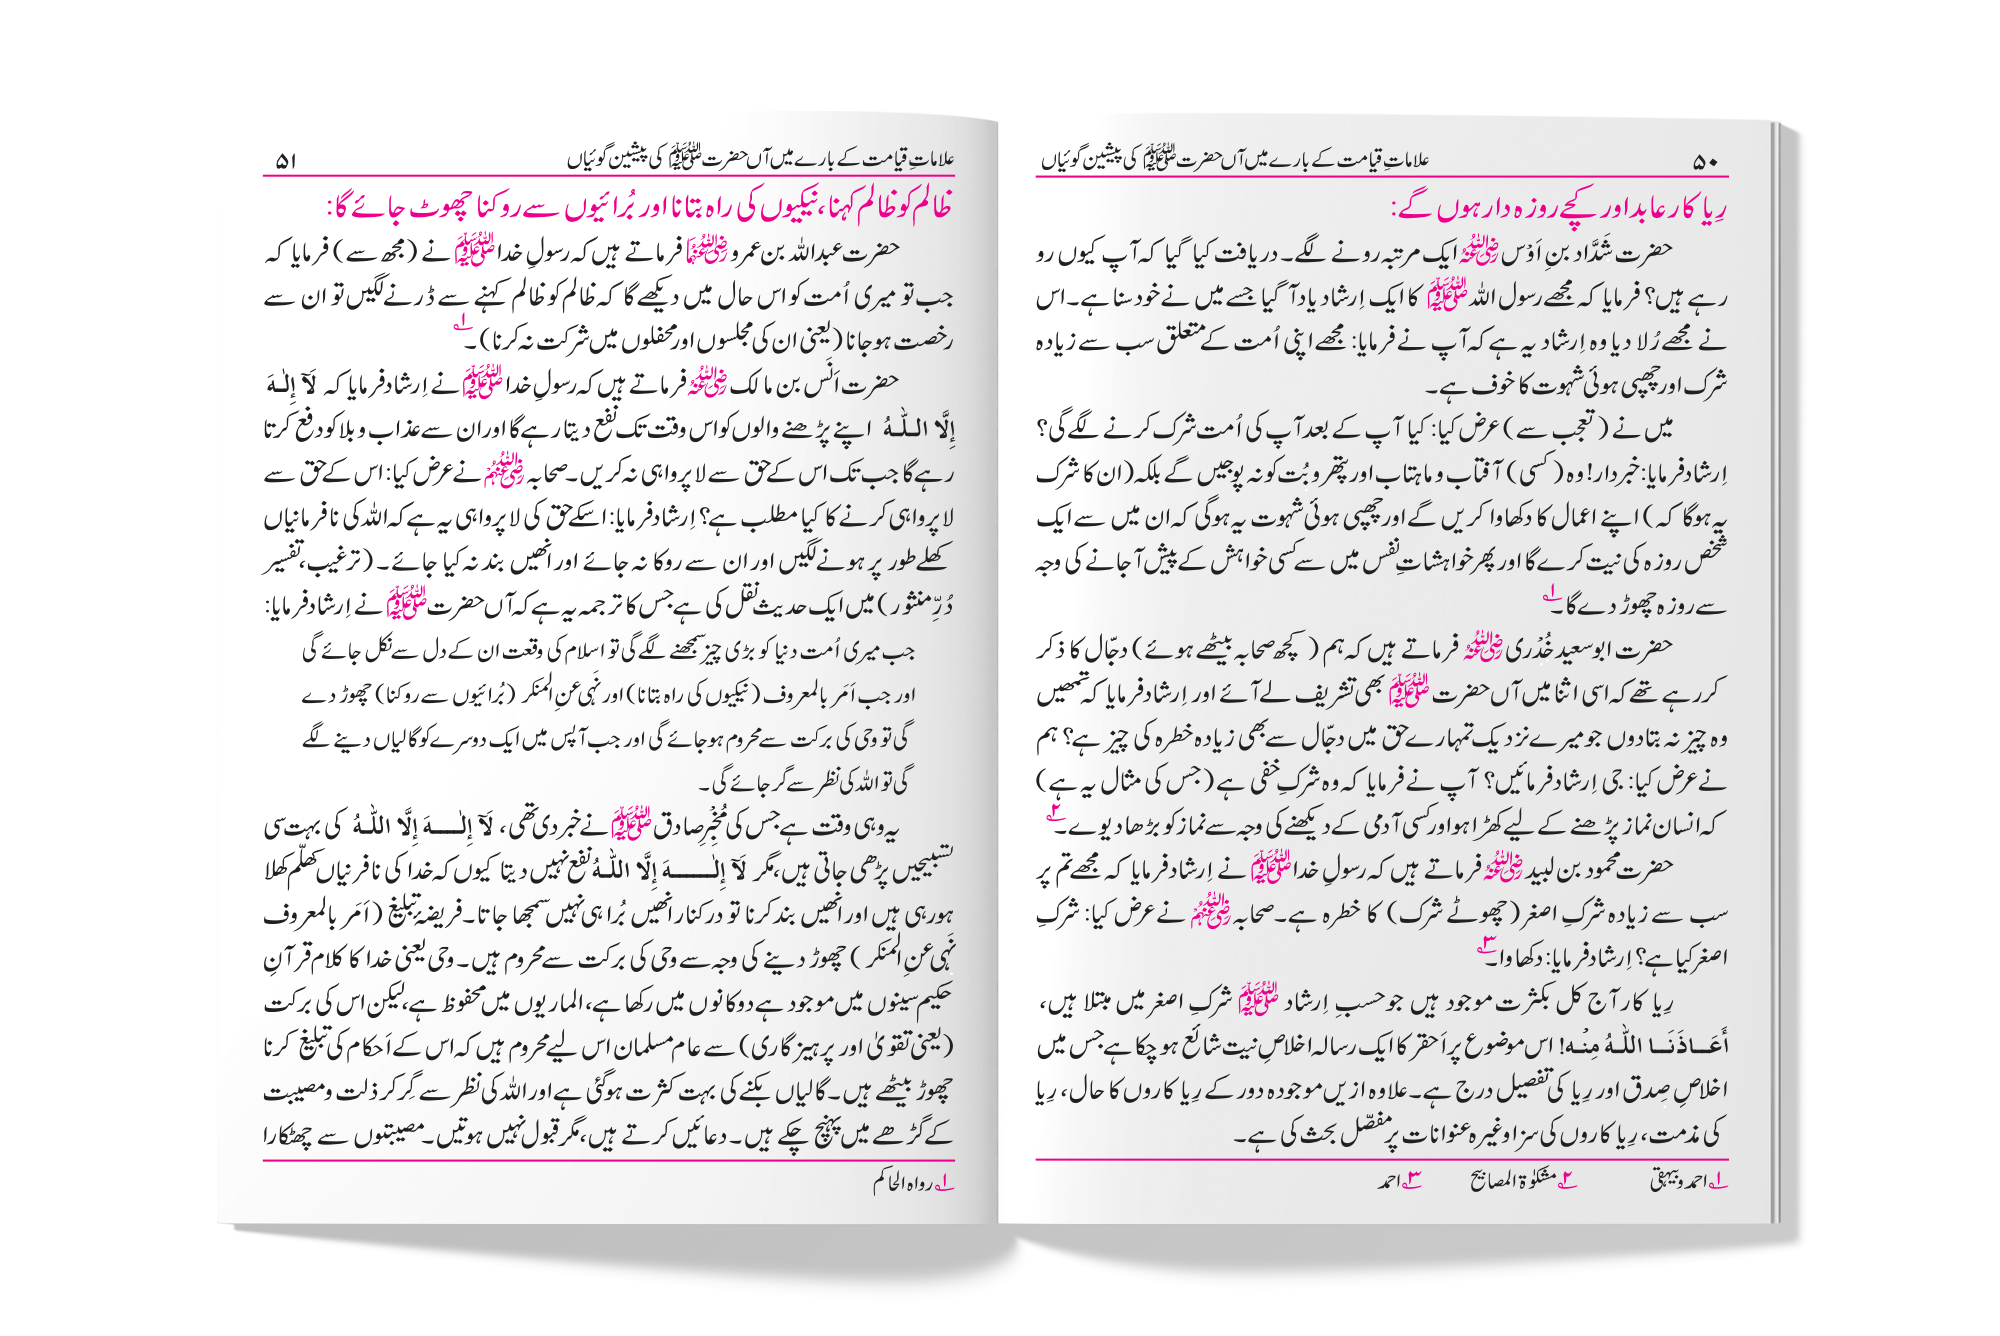 ۵۰
علاماتِ قیامت کے بارے میں آں حضرت ﷺ کی پیشین گوئیاں
رِیا کار عابد اور کچے روزہ دار ہوں گے:
حضرت شَدَّاد بنِ اَوْس رضی اللہ عنہ ایک مرتبہ رونے لگے۔ دریافت کیا گیا کہ آپ کیوں رو
رہے ہیں؟ فرمایا کہ مجھے رسول اللہ ﷺ کا ایک اِرشاد یاد آگیا جسے میں نے خود سنا ہے۔ اس
نے مجھے رُلا دیا وہ اِرشاد یہ ہے کہ آپ نے فرمایا: مجھے اپنی اُمت کے متعلق سب سے زیادہ
شرک اور چھپی ہوئی شہوت کا خوف ہے۔
میں نے (تعجب سے) عرض کیا: کیا آپ کے بعد آپ کی اُمت شرک کرنے لگے گی؟
اِرشاد فرمایا: خبردار! وہ (کسی) آفتاب و ماہتاب اور پتھر و بُت کو نہ پوجیں گے بلکہ (ان کا شرک
یہ ہوگا کہ) اپنے اعمال کا دکھاوا کریں گے اور چھپی ہوئی شہوت یہ ہوگی کہ ان میں سے ایک
شخص روزہ کی نیت کرے گا اور پھر خواہشاتِ نفس میں سے کسی خواہش کے پیش آجانے کی وجہ
سے روزہ چھوڑ دے گا۔ ۱؎
حضرت ابوسعید خُدْری رضی اللہ عنہ فرماتے ہیں کہ ہم (کچھ صحابہ بیٹھے ہوئے) دجّال کا ذکر
کر رہے تھے کہ اسی اثنا میں آں حضرت ﷺ بھی تشریف لے آئے اور اِرشاد فرمایا کہ تمھیں
وہ چیز نہ بتادوں جو میرے نزدیک تمہارے حق میں دجّال سے بھی زیادہ خطرہ کی چیز ہے؟ ہم
نے عرض کیا: جی اِرشاد فرمائیں؟ آپ نے فرمایا کہ وہ شرکِ خفی ہے (جس کی مثال یہ ہے)
کہ انسان نماز پڑھنے کے لیے کھڑا ہو اور کسی آدمی کے دیکھنے کی وجہ سے نماز کو بڑھا دیوے۔ ۲؎
حضرت محمود بن لبید رضی اللہ عنہ فرماتے ہیں کہ رسولِ خدا ﷺ نے اِرشاد فرمایا کہ مجھے تم پر
سب سے زیادہ شرکِ اصغر (چھوٹے شرک) کا خطرہ ہے۔ صحابہ رضی اللہ عنہم نے عرض کیا: شرکِ
اصغر کیا ہے؟ اِرشاد فرمایا: دکھاوا۔ ۳؎
رِیا کار آج کل بکثرت موجود ہیں جو حسبِ اِرشاد ﷺ شرکِ اصغر میں مبتلا ہیں،
أَعَـاذَنَـا اللّٰہُ مِنْہ! اس موضوع پر اَحقر کا ایک رسالہ اخلاصِ نیت شائع ہو چکا ہے جس میں
اخلاصِ صِدق اور رِیا کی تفصیل درج ہے۔ علاوہ ازیں موجودہ دور کے رِیا کاروں کا حال، رِیا
کی مذمت، رِیا کاروں کی سزا وغیرہ عنوانات پر مفصّل بحث کی ہے۔
۱؎ احمد و بیہقی ۲؎ مشکوٰۃ المصابیح ۳؎ احمد
علاماتِ قیامت کے بارے میں آں حضرت ﷺ کی پیشین گوئیاں
۵۱
ظالم کو ظالم کہنا، نیکیوں کی راہ بتانا اور بُرائیوں سے روکنا چھوٹ جائے گا:
حضرت عبداللہ بن عمرو رضی اللہ عنہما فرماتے ہیں کہ رسولِ خدا ﷺ نے (مجھ سے) فرمایا کہ
جب تو میری اُمت کو اس حال میں دیکھے گا کہ ظالم کو ظالم کہنے سے ڈرنے لگیں تو ان سے
رخصت ہوجانا (یعنی ان کی مجلسوں اور محفلوں میں شرکت نہ کرنا)۔ ۱؎
حضرت اَنَس بن مالک رضی اللہ عنہ فرماتے ہیں کہ رسولِ خدا ﷺ نے اِرشاد فرمایا کہ لَآ إِلٰـہَ
إِلَّا الـلّٰـہُ اپنے پڑھنے والوں کو اس وقت تک نفع دیتا رہے گا اور ان سے عذاب و بلا کو دفع کرتا
رہے گا جب تک اس کے حق سے لاپرواہی نہ کریں۔ صحابہ رضی اللہ عنہم نے عرض کیا: اس کے حق سے
لاپرواہی کرنے کا کیا مطلب ہے؟ اِرشاد فرمایا: اسکے حق کی لاپرواہی یہ ہے کہ اللہ کی نافرمانیاں
کھلے طور پر ہونے لگیں اور ان سے روکا نہ جائے اور انھیں بند نہ کیا جائے۔ (ترغیب، تفسیر
دُرِّ منثور) میں ایک حدیث نقل کی ہے جس کا ترجمہ یہ ہے کہ آں حضرت ﷺ نے اِرشاد فرمایا:
جب میری اُمت دنیا کو بڑی چیز سمجھنے لگے گی تو اسلام کی وقعت ان کے دل سے نکل جائے گی
اور جب اَمَر بالمعروف (نیکیوں کی راہ بتانا) اور نَہی عنِ المنکَر (بُرائیوں سے روکنا) چھوڑ دے
گی تو وحی کی برکت سے محروم ہوجائے گی اور جب آپس میں ایک دوسرے کو گالیاں دینے لگے
گی تو اللہ کی نظر سے گر جائے گی۔
یہ وہی وقت ہے جس کی مُخْبِرِ صادق ﷺ نے خبر دی تھی، لَآ إِلٰـہَ إِلَّا اللّٰہُ کی بہت سی
تسبیحیں پڑھی جاتی ہیں، مگر لَآ إِلٰـہَ إِلَّا اللّٰہُ نفع نہیں دیتا کیوں کہ خدا کی نافرنیاں کھلّم کھلا
ہورہی ہیں اور انھیں بند کرنا تو درکنار انھیں بُرا ہی نہیں سمجھا جاتا۔ فریضۂ تبلیغ (اَمَر بالمعروف
نَہی عنِ المنکَر) چھوڑ دینے کی وجہ سے وحی کی برکت سے محروم ہیں۔ وحی یعنی خدا کا کلام قرآنِ
حکیم سینوں میں موجود ہے دوکانوں میں رکھا ہے، الماریوں میں محفوظ ہے، لیکن اس کی برکت
(یعنی تقویٰ اور پرہیز گاری) سے عام مسلمان اس لیے محروم ہیں کہ اس کے اَحکام کی تبلیغ کرنا
چھوڑ بیٹھے ہیں۔ گالیاں بکنے کی بہت کثرت ہوگئی ہے اور اللہ کی نظر سے گِر کر ذلت و مصیبت
کے گڑھے میں پہنچ چکے ہیں۔ دعائیں کرتے ہیں، مگر قبول نہیں ہوتیں۔ مصیبتوں سے چھٹکارا
۱؎ رواہ الحاکم